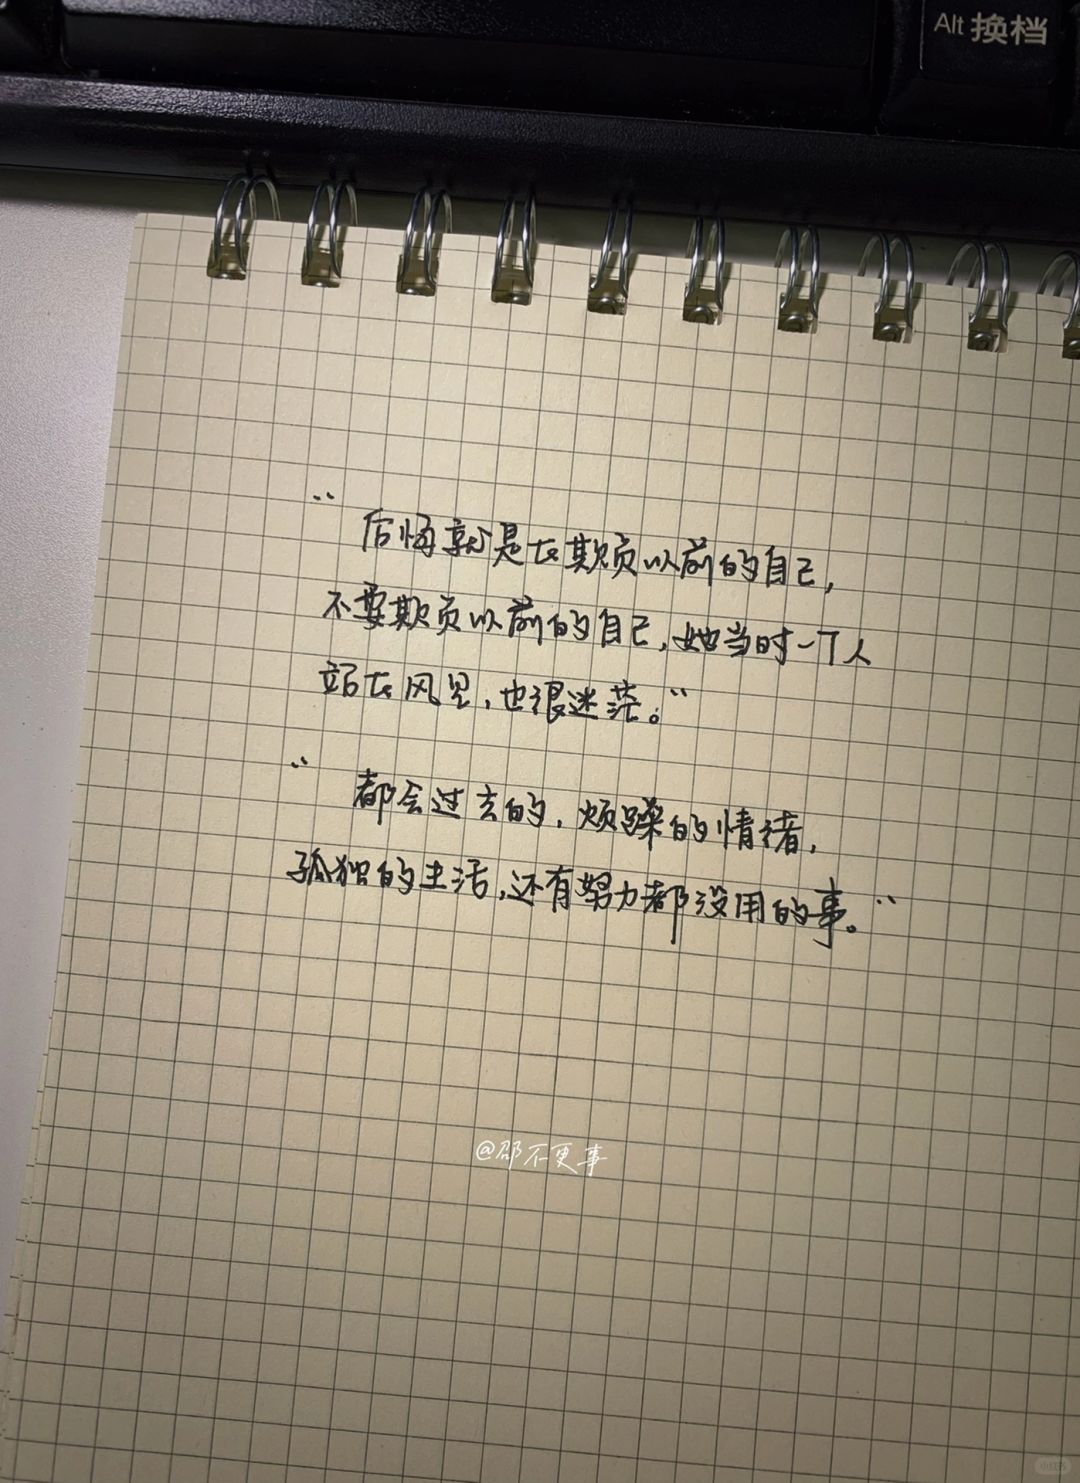 Alt 换档
“后悔就是在欺负以前的自己,
不要欺负以前的自己,她当时一个人
站在风里,也很迷茫。”
“都会过去的,烦躁的情绪,
孤独的生活,还有努力都没用的事。”
@邵不更事
小红书